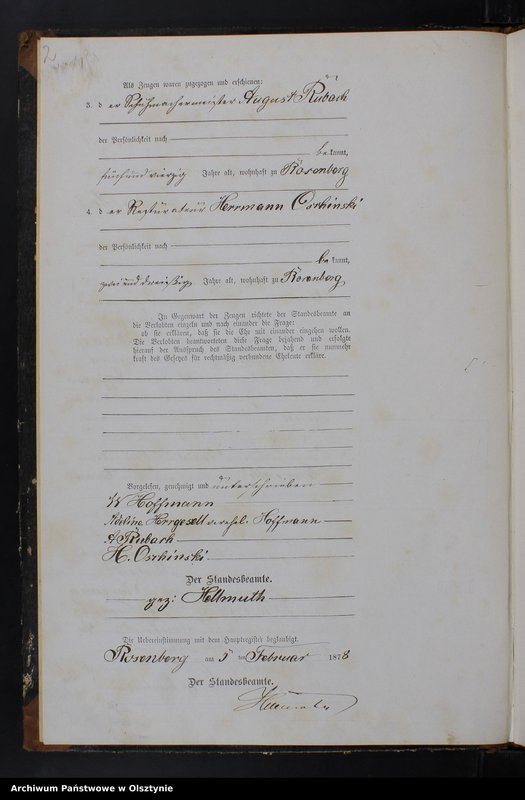 2
Als Zeugen waren zugezogen und erschienen:
3. d er Schuhmachermeister August Rubach
der Persönlichkeit nach
be kannt,
fünf und vierzig Jahre alt, wohnhaft zu Rosenberg
4. d er Restaurateur Herrmann Oschinski
der Persönlichkeit nach
be kannt,
zwei und dreißig Jahre alt, wohnhaft zu Rosenberg
In Gegenwart der Zeugen richtete der Standesbeamte an
die Verlobten einzeln und nach einander die Frage:
ob sie erklären, daß sie die Ehe mit einander eingehen wollen.
Die Verlobten beantworteten diese Frage bejahend und erfolgte
hierauf der Ausspruch des Standesbeamten, daß er sie nunmehr
kraft des Gesetzes für rechtmäßig verbundene Eheleute erkläre.
Vorgelesen, genehmigt und unterschrieben
W Hoffmann
Adeline Herrgesell verehel. Hoffmann
A Rubach
H. Oschinski
Der Standesbeamte.
gez: Hellmuth
Die Uebereinstimmung mit dem Hauptregister beglaubigt.
Rosenberg am 5 ten Februar 1878
Der Standesbeamte.
Archiwum Państwowe w Olsztynie